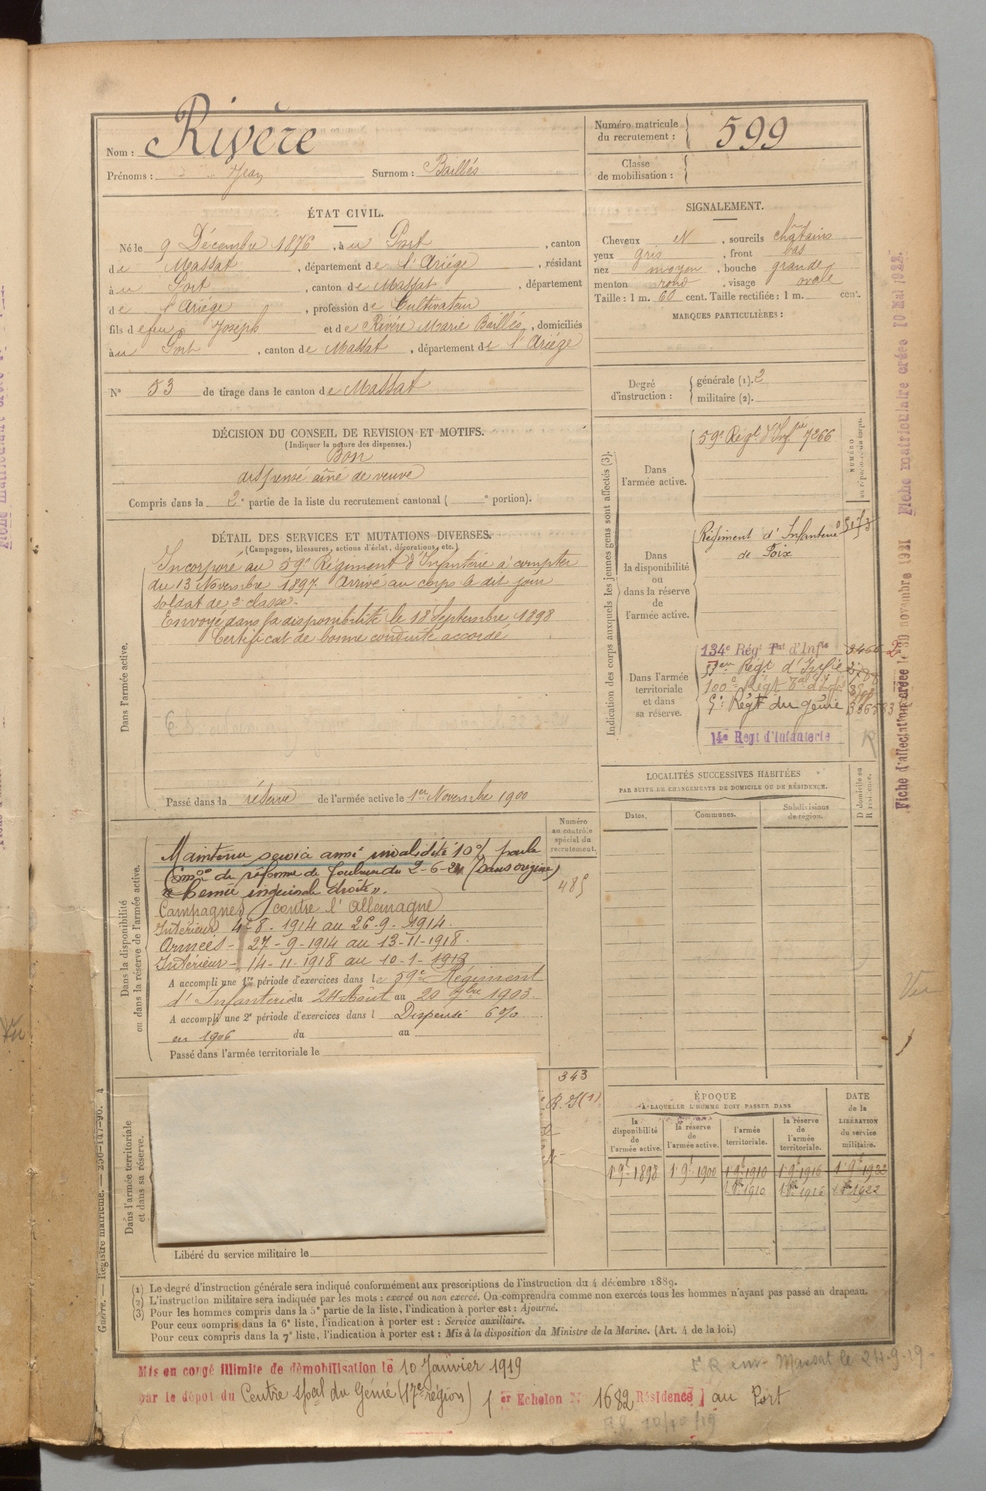 Nom : Rivère
Prénoms : Jean Surnom : Baillés
Numéro matricule
du recrutement : 599
Classe
de mobilisation :
ÉTAT CIVIL.
Né le 9 Décembre 1876, à u Port, canton
de Massat, département de l'Ariège, résidant
à u Port, canton de Massat, département
de l'Ariège, profession de Cultivateur
fils de feu Joseph et de Rivère Marie Baillés, domiciliés
à u Port, canton de Massat, département de l'Ariège
N° 53 de tirage dans le canton de Massat
SIGNALEMENT.
Cheveux N, sourcils châtains
yeux gris, front bas
nez moyen, bouche grande
menton rond, visage ovale
Taille : 1 m. 60 cent. Taille rectifiée : 1 m. cent.
MARQUES PARTICULIÈRES :
Degré
d'instruction :
générale (1). 2
militaire (2).
DÉCISION DU CONSEIL DE REVISION ET MOTIFS.
(Indiquer la nature des dispenses.)
Bon
dispensé aîné de veuve
Compris dans la 2e partie de la liste du recrutement cantonal ( e portion).
DÉTAIL DES SERVICES ET MUTATIONS DIVERSES.
(Campagnes, blessures, actions d'éclat, décorations, etc.)
Dans l'armée active.
Incorporé au 59e Régiment d'Infanterie à compter
du 13 Novembre 1897. Arrivé au corps le dit jour
soldat de 2e classe.
Envoyé dans la disponibilité le 18 Septembre 1898
Certificat de bonne conduite accordé
Passé dans la réserve de l'armée active le 1er Novembre 1900
Indication des corps auxquels les jeunes gens sont affectés (3).
Dans
l'armée active.
59e Régt d'Infrie 7266
Dans
la disponibilité
ou
dans la réserve
de
l'armée active.
Régiment d'Infanterie
de Foix
Dans l'armée
territoriale
et dans
sa réserve.
134e Régt Tal d'Infie
Régt d'Infie
100e Régt Tal d'Inf
Régt du génie
14e Regt d'Infanterie
Dans la disponibilité
ou dans la réserve de l'armée active.
Numéro
au contrôle
spécial du
recrutement.
485
Maintenu service armé invalidité 10% par la
Comon de réforme de Toulouse du 2-6-21 (sans origine)
"Hernie inguinale droite".
Campagnes contre l'Allemagne
Intérieur 4-8-1914 au 26-9-1914.
Armées - 27-9-1914 au 13-11-1918.
Intérieur - 14-11-1918 au 10-1-1919
A accompli une 1re période d'exercices dans le 59e Régiment
d'Infanterie du 24 Août au 20 7bre 1903.
A accompli une 2e période d'exercices dans l Dispensé 6%
en 1906 du au
Passé dans l'armée territoriale le
LOCALITÉS SUCCESSIVES HABITÉES
PAR SUITE DE CHANGEMENTS DE DOMICILE OU DE RÉSIDENCE.
Dates. Communes. Subdivisions
de région. D domicile ou
R résidence.
Dans l'armée territoriale
et dans sa réserve.
343
Libéré du service militaire le
ÉPOQUE
A LAQUELLE L'HOMME DOIT PASSER DANS
la
disponibilité
de
l'armée active.
la réserve
de
l'armée active.
l'armée
territoriale.
la réserve
de
l'armée
territoriale.
DATE
de la
LIBÉRATION
du service
militaire.
1 9e 1898 1 9e 1900 1 9e 1910 1 9e 1916 1 9e 1922
1 8bre 1910 1 8bre 1916 1 8bre 1922
(1) Le degré d'instruction générale sera indiqué conformément aux prescriptions de l'instruction du 4 décembre 1889.
(2) L'instruction militaire sera indiquée par les mots : exercé ou non exercé. On comprendra comme non exercés tous les hommes n'ayant pas passé au drapeau.
(3) Pour les hommes compris dans la 5e partie de la liste, l'indication à porter est : Ajourné.
Pour ceux compris dans la 6e liste, l'indication à porter est : Service auxiliaire.
Pour ceux compris dans la 7e liste, l'indication à porter est : Mis à la disposition du Ministre de la Marine. (Art. 4 de la loi.)
Mis en congé illimité de démobilisation le 10 Janvier 1919
par le dépôt du Centre spal du Génie (17e région) (1er Echelon N° 1682 Résidence) au Port
Massat le 24-9-19
Fiche d'affectation créée le 30 novembre 1921 Fiche matriculaire créée 10 Mai 1922.
Guerre. — Registre matricule.